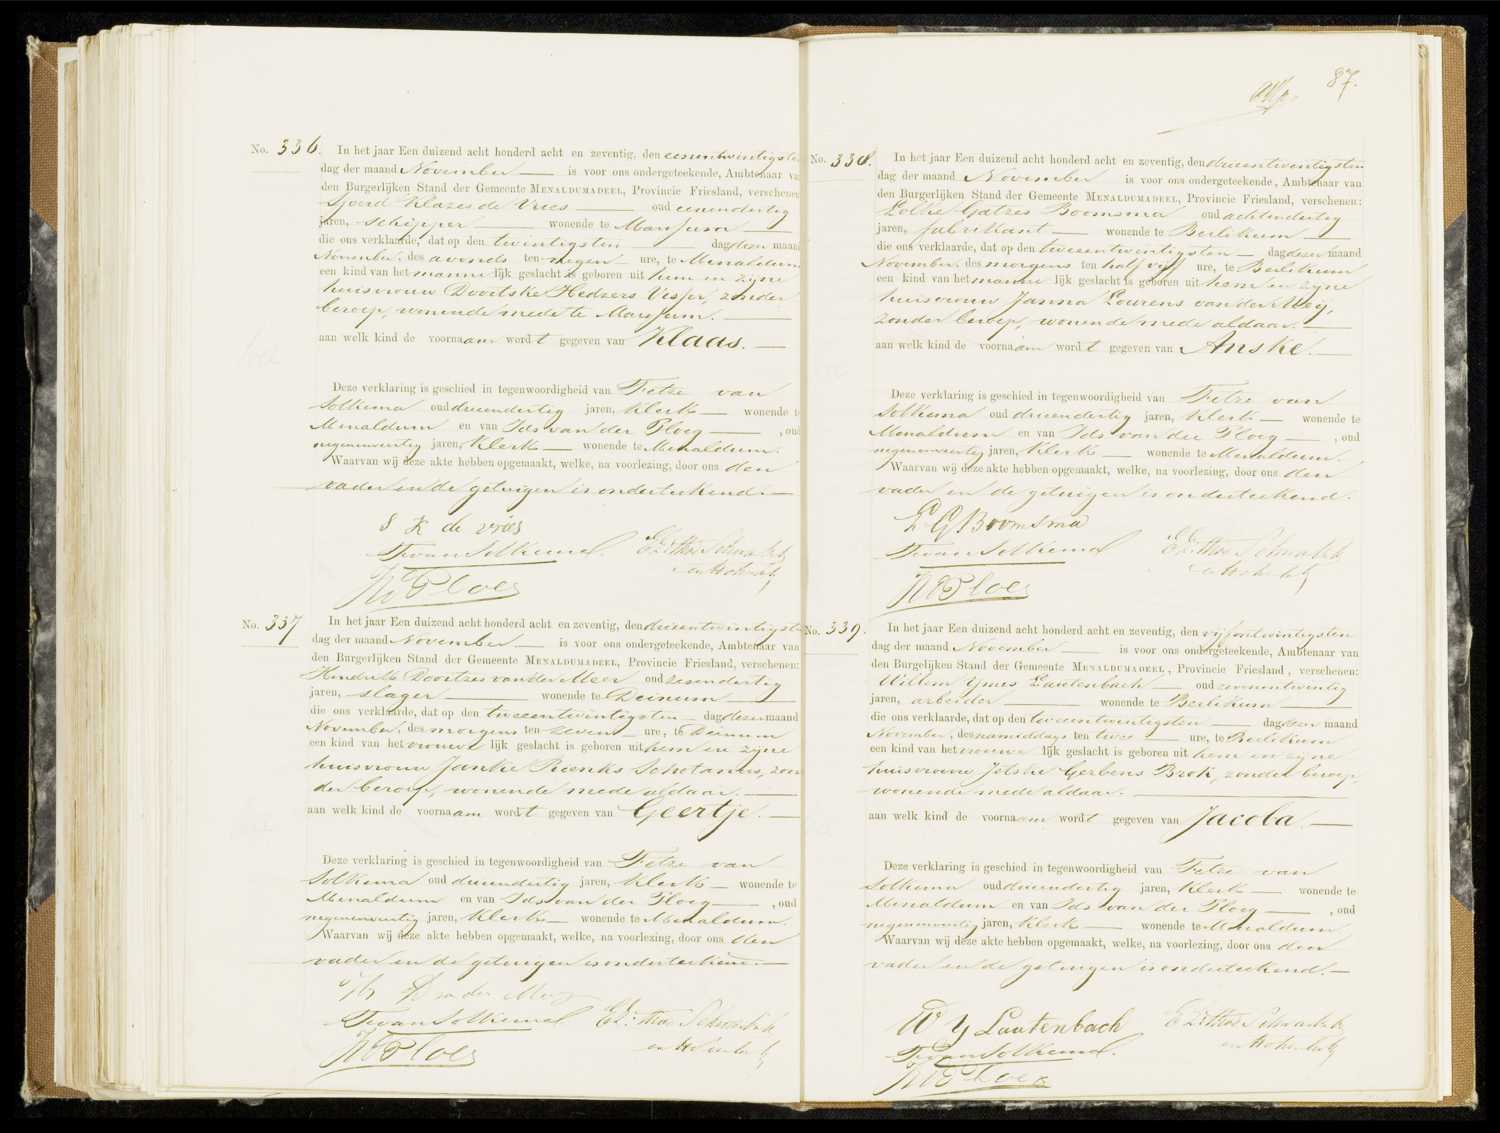 No. 336. In het jaar Een duizend acht honderd acht en zeventig, den eenentwintigsten
dag der maand November — is voor ons ondergeteekende, Ambtenaar van
den Burgerlijken Stand der Gemeente MENALDUMADEEL, Provincie Friesland, verschenen:
Sjoerd Klazes de Vries — oud eenendertig
jaren, schipper — wonende te Marssum —
die ons verklaarde, dat op den twintigsten — dag dezer maand
November, des avonds ten negen ure, te Menaldum
een kind van het manne lijk geslacht is geboren uit hem en zijne
huisvrouw Doeitske Hedzers Visser, zonder
beroep, wonende mede te Marssum. —
aan welk kind de voornaam wordt gegeven van Klaas. —
Deze verklaring is geschied in tegenwoordigheid van Fetze van
Solkema oud drieendertig jaren, klerk — wonende te
Menaldum en van Ids van der Ploeg — , oud
negenenveertig jaren, klerk — wonende te Menaldum.
Waarvan wij deze akte hebben opgemaakt, welke, na voorlezing, door ons den
vader en de getuigen is onderteekend. —
S K de vries
F. van Solkema.
No. 337 In het jaar Een duizend acht honderd acht en zeventig, den drieentwintigsten
dag der maand November — is voor ons ondergeteekende, Ambtenaar van
den Burgerlijken Stand der Gemeente MENALDUMADEEL, Provincie Friesland, verschenen:
Hendrik Doeitzes van der Meer oud zesendertig
jaren, slager — wonende te Deinum —
die ons verklaarde, dat op den tweeentwintigsten — dag dezer maand
November, des morgens ten zeven ure, te Deinum
een kind van het vrouwe lijk geslacht is geboren uit hem en zijne
huisvrouw Janke Rienks Schotanus, zon
der beroep, wonende mede aldaar. —
aan welk kind de voornaam wordt gegeven van Geertje. —
Deze verklaring is geschied in tegenwoordigheid van Fetze van
Solkema oud drieendertig jaren, klerk — wonende te
Menaldum en van Ids van der Ploeg — , oud
negenenveertig jaren, klerk — wonende te Menaldum.
Waarvan wij deze akte hebben opgemaakt, welke, na voorlezing, door ons den
vader en de getuigen is onderteekend. —
F. van Solkema
87.
No. 338. In het jaar Een duizend acht honderd acht en zeventig, den drieentwintigsten
dag der maand November is voor ons ondergeteekende, Ambtenaar van
den Burgerlijken Stand der Gemeente MENALDUMADEEL, Provincie Friesland, verschenen:
Eolke Gatzes Boomsma oud achtendertig
jaren, fabrikant — wonende te Berlikum —
die ons verklaarde, dat op den tweeentwintigsten — dag dezer maand
November, des morgens ten half vijf ure, te Berlikum
een kind van het manne lijk geslacht is geboren uit hem en zijne
huisvrouw Janna Lourens van der Weij,
zonder beroep, wonende mede aldaar. —
aan welk kind de voornaam wordt gegeven van Anske. —
Deze verklaring is geschied in tegenwoordigheid van Fetze van
Solkema oud drieendertig jaren, klerk — wonende te
Menaldum en van Ids van der Ploeg — , oud
negenenveertig jaren, klerk — wonende te Menaldum.
Waarvan wij deze akte hebben opgemaakt, welke, na voorlezing, door ons den
vader en de getuigen is onderteekend.
E G Boomsma
F. van Solkema
No. 339. In het jaar Een duizend acht honderd acht en zeventig, den vijfentwintigsten
dag der maand November — is voor ons ondergeteekende, Ambtenaar van
den Burgelijken Stand der Gemeente MENALDUMADEEL, Provincie Friesland, verschenen:
Willem Ymes Lautenbach — oud zevenentwintig
jaren, arbeider — wonende te Berlikum —
die ons verklaarde, dat op den tweeentwintigsten — dag dezer maand
November, des namiddags ten twee — ure, te Berlikum
een kind van het vrouwe lijk geslacht is geboren uit hem en zijne
huisvrouw Jetske Gerbens Brok, zonder beroep,
wonende mede aldaar. —
aan welk kind de voornaam wordt gegeven van Jacoba. —
Deze verklaring is geschied in tegenwoordigheid van Fetze van
Solkema oud drieendertig jaren, klerk — wonende te
Menaldum en van Ids van der Ploeg — , oud
negenenveertig jaren, klerk — wonende te Menaldum.
Waarvan wij deze akte hebben opgemaakt, welke, na voorlezing, door ons den
vader en de getuigen is onderteekend. —
W Y Lautenbach
F. van Solkema.